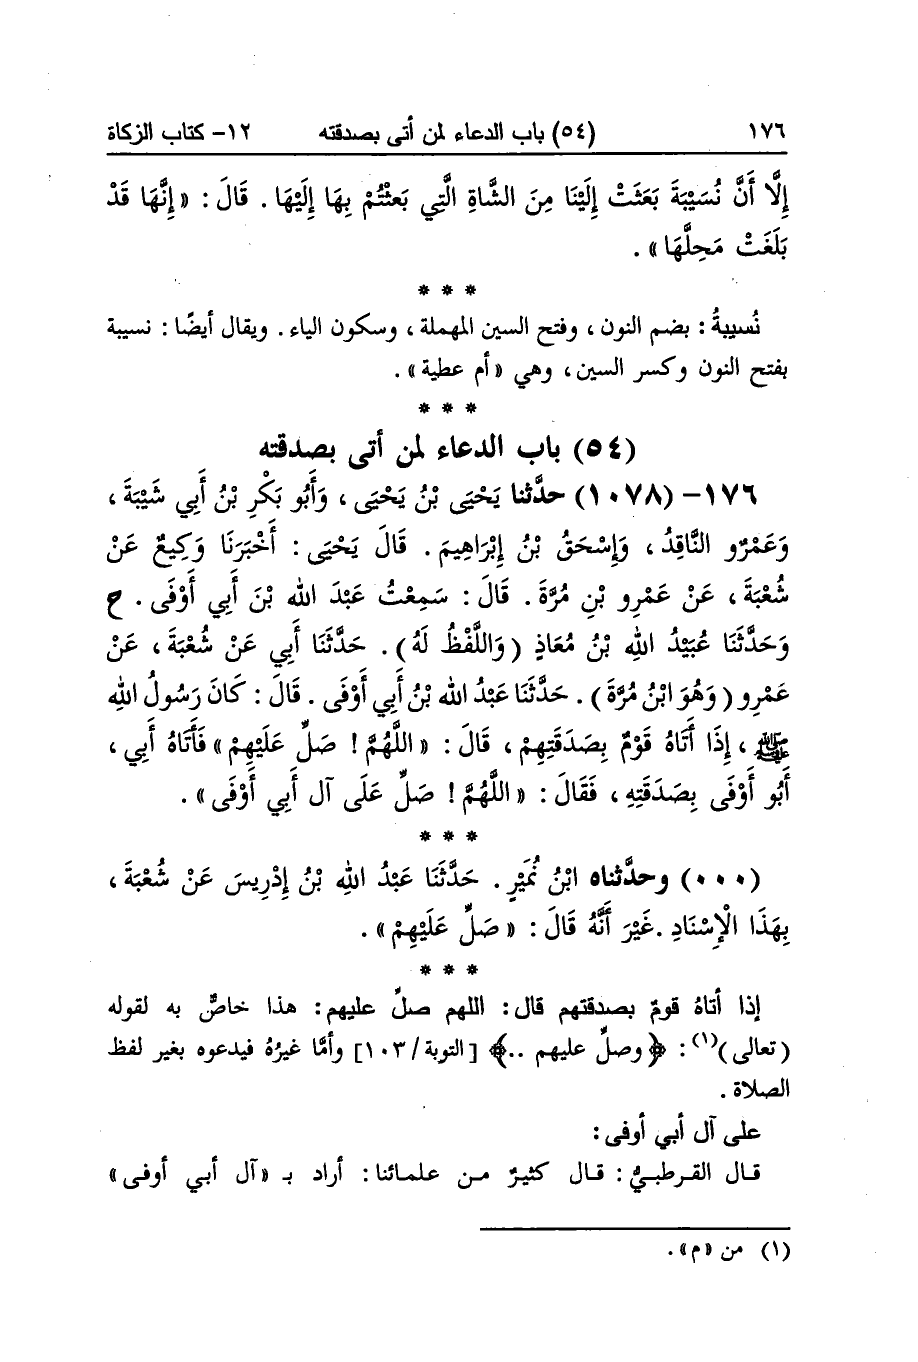 ١٧٦ (٥٤) باب الدعاء لمن أتى بصدقته ١٢- كتاب الزكاة
إِلَّا أَنَّ نُسَيْبَةَ بَعَثَتْ إِلَيْنَا مِنَ الشَّاةِ الَّتِي بَعَثْتُمْ بِهَا إِلَيْهَا . قَالَ : « إِنَّهَا قَدْ
بَلَغَتْ مَحِلَّهَا » .
* * *
نُسيبةُ : بضم النون ، وفتح السين المهملة ، وسكون الياء . ويقال أيضًا : نسيبة
بفتح النون وكسر السين ، وهي « أم عطية » .
* * *
(٥٤) باب الدعاء لمن أتى بصدقته
١٧٦- (١٠٧٨) حدَّثنا يَحْيَى بْنُ يَحْيَى ، وَأَبُو بَكْرِ بْنُ أَبِي شَيْبَةَ ،
وَعَمْرٌو النَّاقِدُ ، وَإِسْحَقُ بْنُ إِبْرَاهِيمَ . قَالَ يَحْيَى : أَخْبَرَنَا وَكِيعٌ عَنْ
شُعْبَةَ ، عَنْ عَمْرِو بْنِ مُرَّةَ . قَالَ : سَمِعْتُ عَبْدَ اللهِ بْنَ أَبِي أَوْفَى . ح
وَحَدَّثَنَا عُبَيْدُ اللهِ بْنُ مُعَاذٍ ( وَاللَّفْظُ لَهُ ) . حَدَّثَنَا أَبِي عَنْ شُعْبَةَ ، عَنْ
عَمْرِو ( وَهُوَ ابْنُ مُرَّةَ ) . حَدَّثَنَا عَبْدُ اللهِ بْنُ أَبِي أَوْفَى . قَالَ : كَانَ رَسُولُ اللهِ
ﷺ ، إِذَا أَتَاهُ قَوْمٌ بِصَدَقَتِهِمْ ، قَالَ : « اللَّهُمَّ ! صَلِّ عَلَيْهِمْ » فَأَتَاهُ أَبِي ،
أَبُو أَوْفَى بِصَدَقَتِهِ ، فَقَالَ : « اللَّهُمَّ ! صَلِّ عَلَى آلِ أَبِي أَوْفَى » .
* * *
(٠٠٠) وحدَّثناه ابْنُ نُمَيْرٍ . حَدَّثَنَا عَبْدُ اللهِ بْنُ إِدْرِيسَ عَنْ شُعْبَةَ ،
بِهَذَا الْإِسْنَادِ .غَيْرَ أَنَّهُ قَالَ : « صَلِّ عَلَيْهِمْ » .
* * *
إذا أتاهُ قومٌ بصدقتهم قال : اللهم صلِّ عليهم : هذا خاصٌّ به لقوله
( تعالى )(١) : ﴿ وصلِّ عليهم ..﴾ [ التوبة / ١٠٣ ] وأمَّا غيرُهُ فيدعوه بغير لفظ
الصلاة .
على آل أبي أوفى :
قال القرطبيُّ : قال كثيرٌ من علمائنا : أراد بـ « آل أبي أوفى »
(١) من « م » .